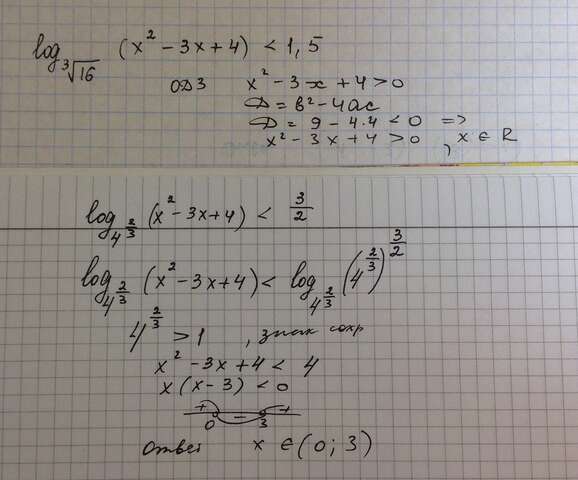 log_{∛16} (x² - 3x + 4) < 1,5
ОДЗ x² - 3x + 4 > 0
D = b² - 4ac
D = 9 - 4·4 < 0 =>
x² - 3x + 4 > 0, x ∈ R
log_{4^{2/3}} (x² - 3x + 4) < 3/2
log_{4^{2/3}} (x² - 3x + 4) < log_{4^{2/3}} (4^{2/3})^{3/2}
4^{2/3} > 1, знак сохр
x² - 3x + 4 < 4
x(x - 3) < 0
+ - +
0 3
Ответ x ∈ (0; 3)